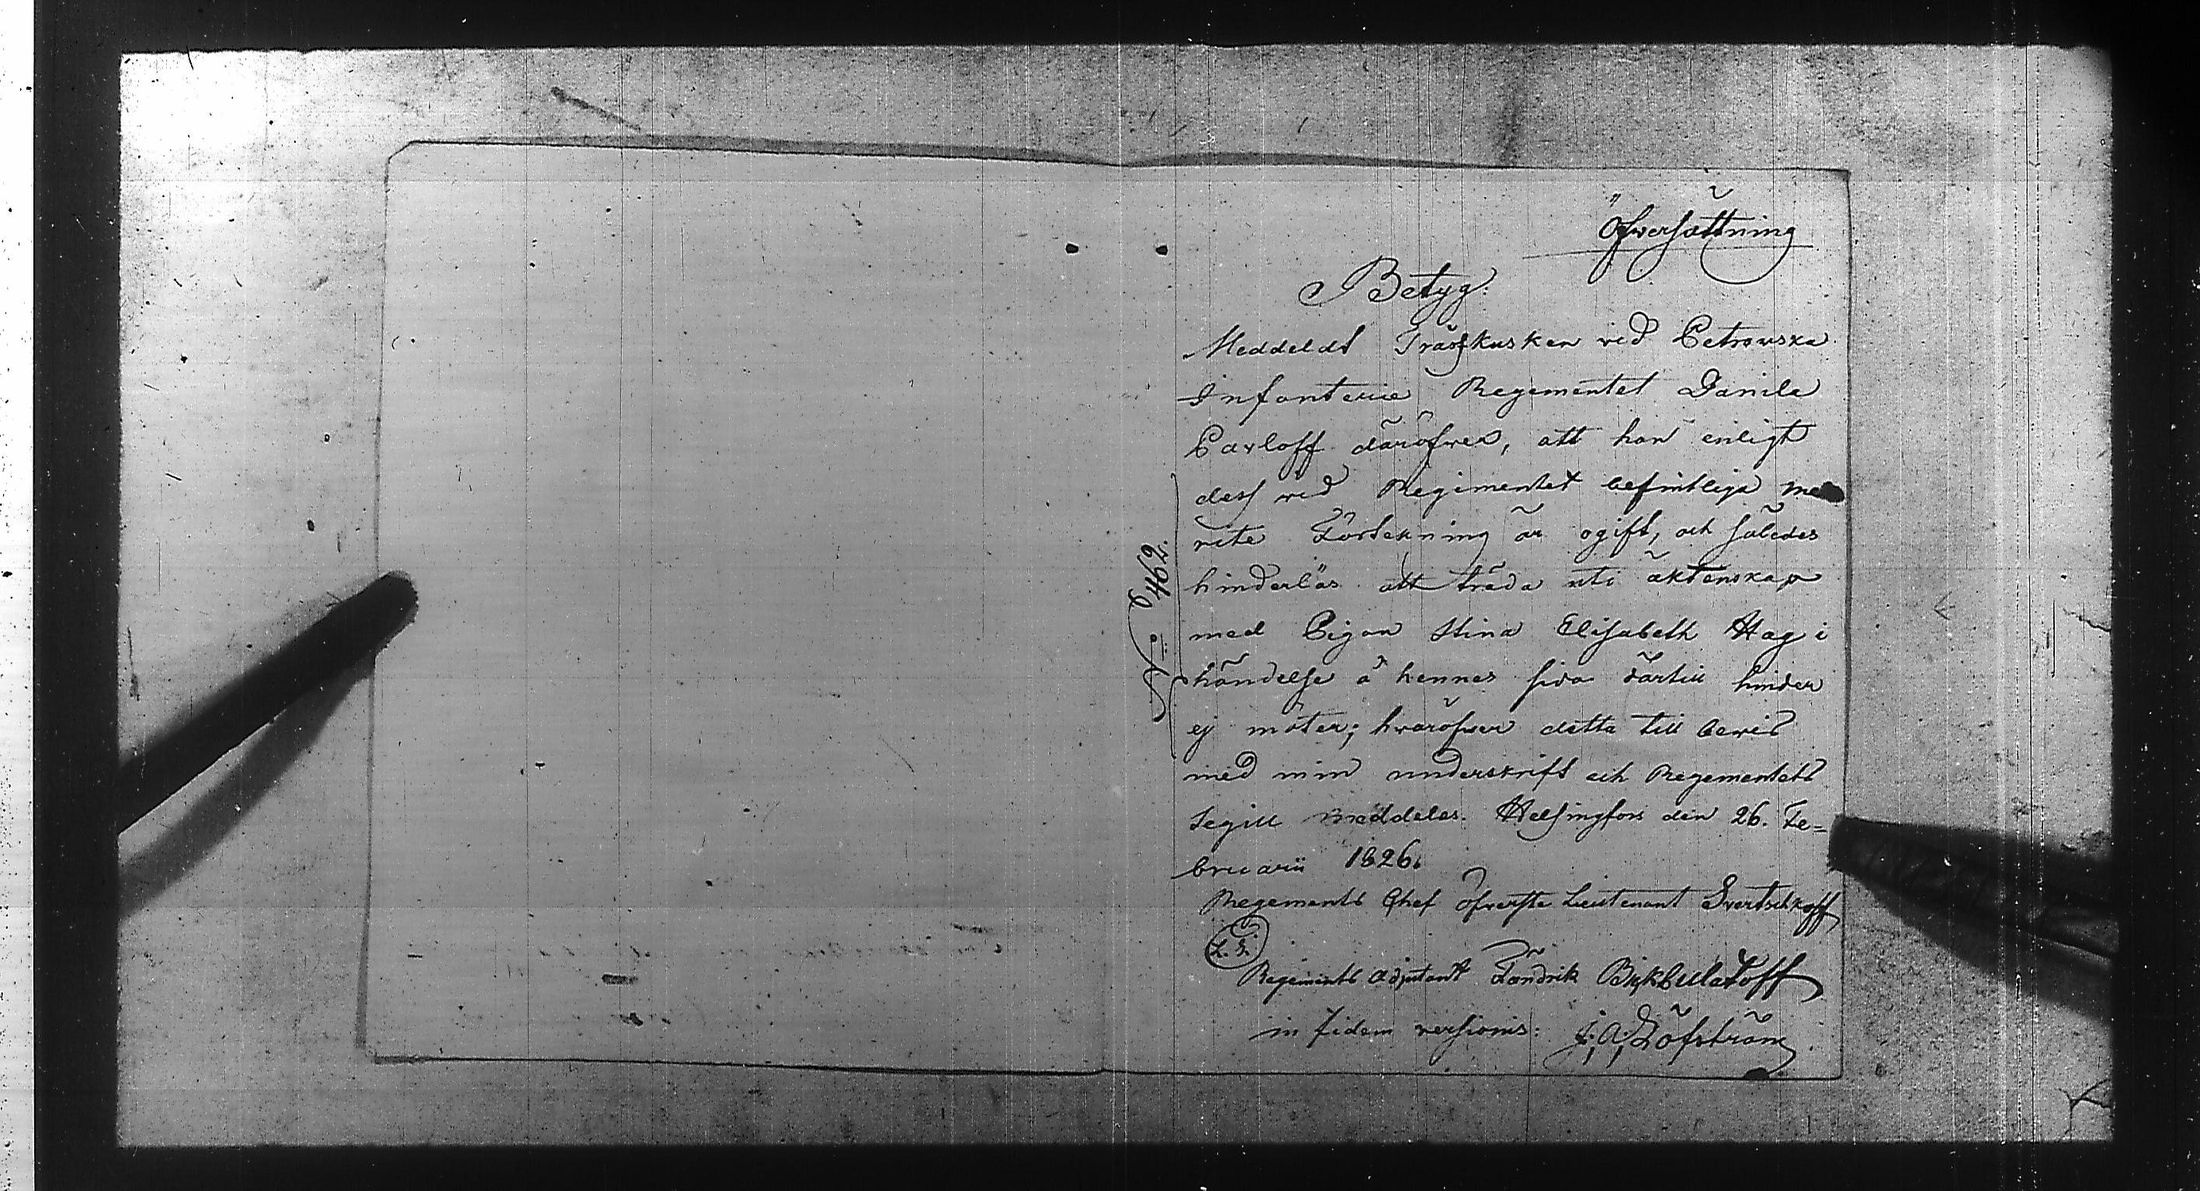 Öfversättning
Betyg:
Meddeldt Trosskusken vid Petrovska
Infanterie Regementet Danila
Pavloff däröfver, att han enligt
dess vid Regimentet befintliga me
rite Förtekning är ogift, och således
hinderlös att träda uti äktenskap
med Pigan Stina Elisabeth Hag i
händelse å hennes sida därtill hinder
ej möter; hvaröfver detta till bevis
med min underskrift och Regementets
Segill meddeles. Helsingfors den 26. Fe=
bruarii 1826.
Regements Chef Öfverste Lieutenant Svertschkoff
L. S.
Regiments Adjutant Fändrik Bikbulatoff
in fidem versionis: J. A. Löfström
No 462.